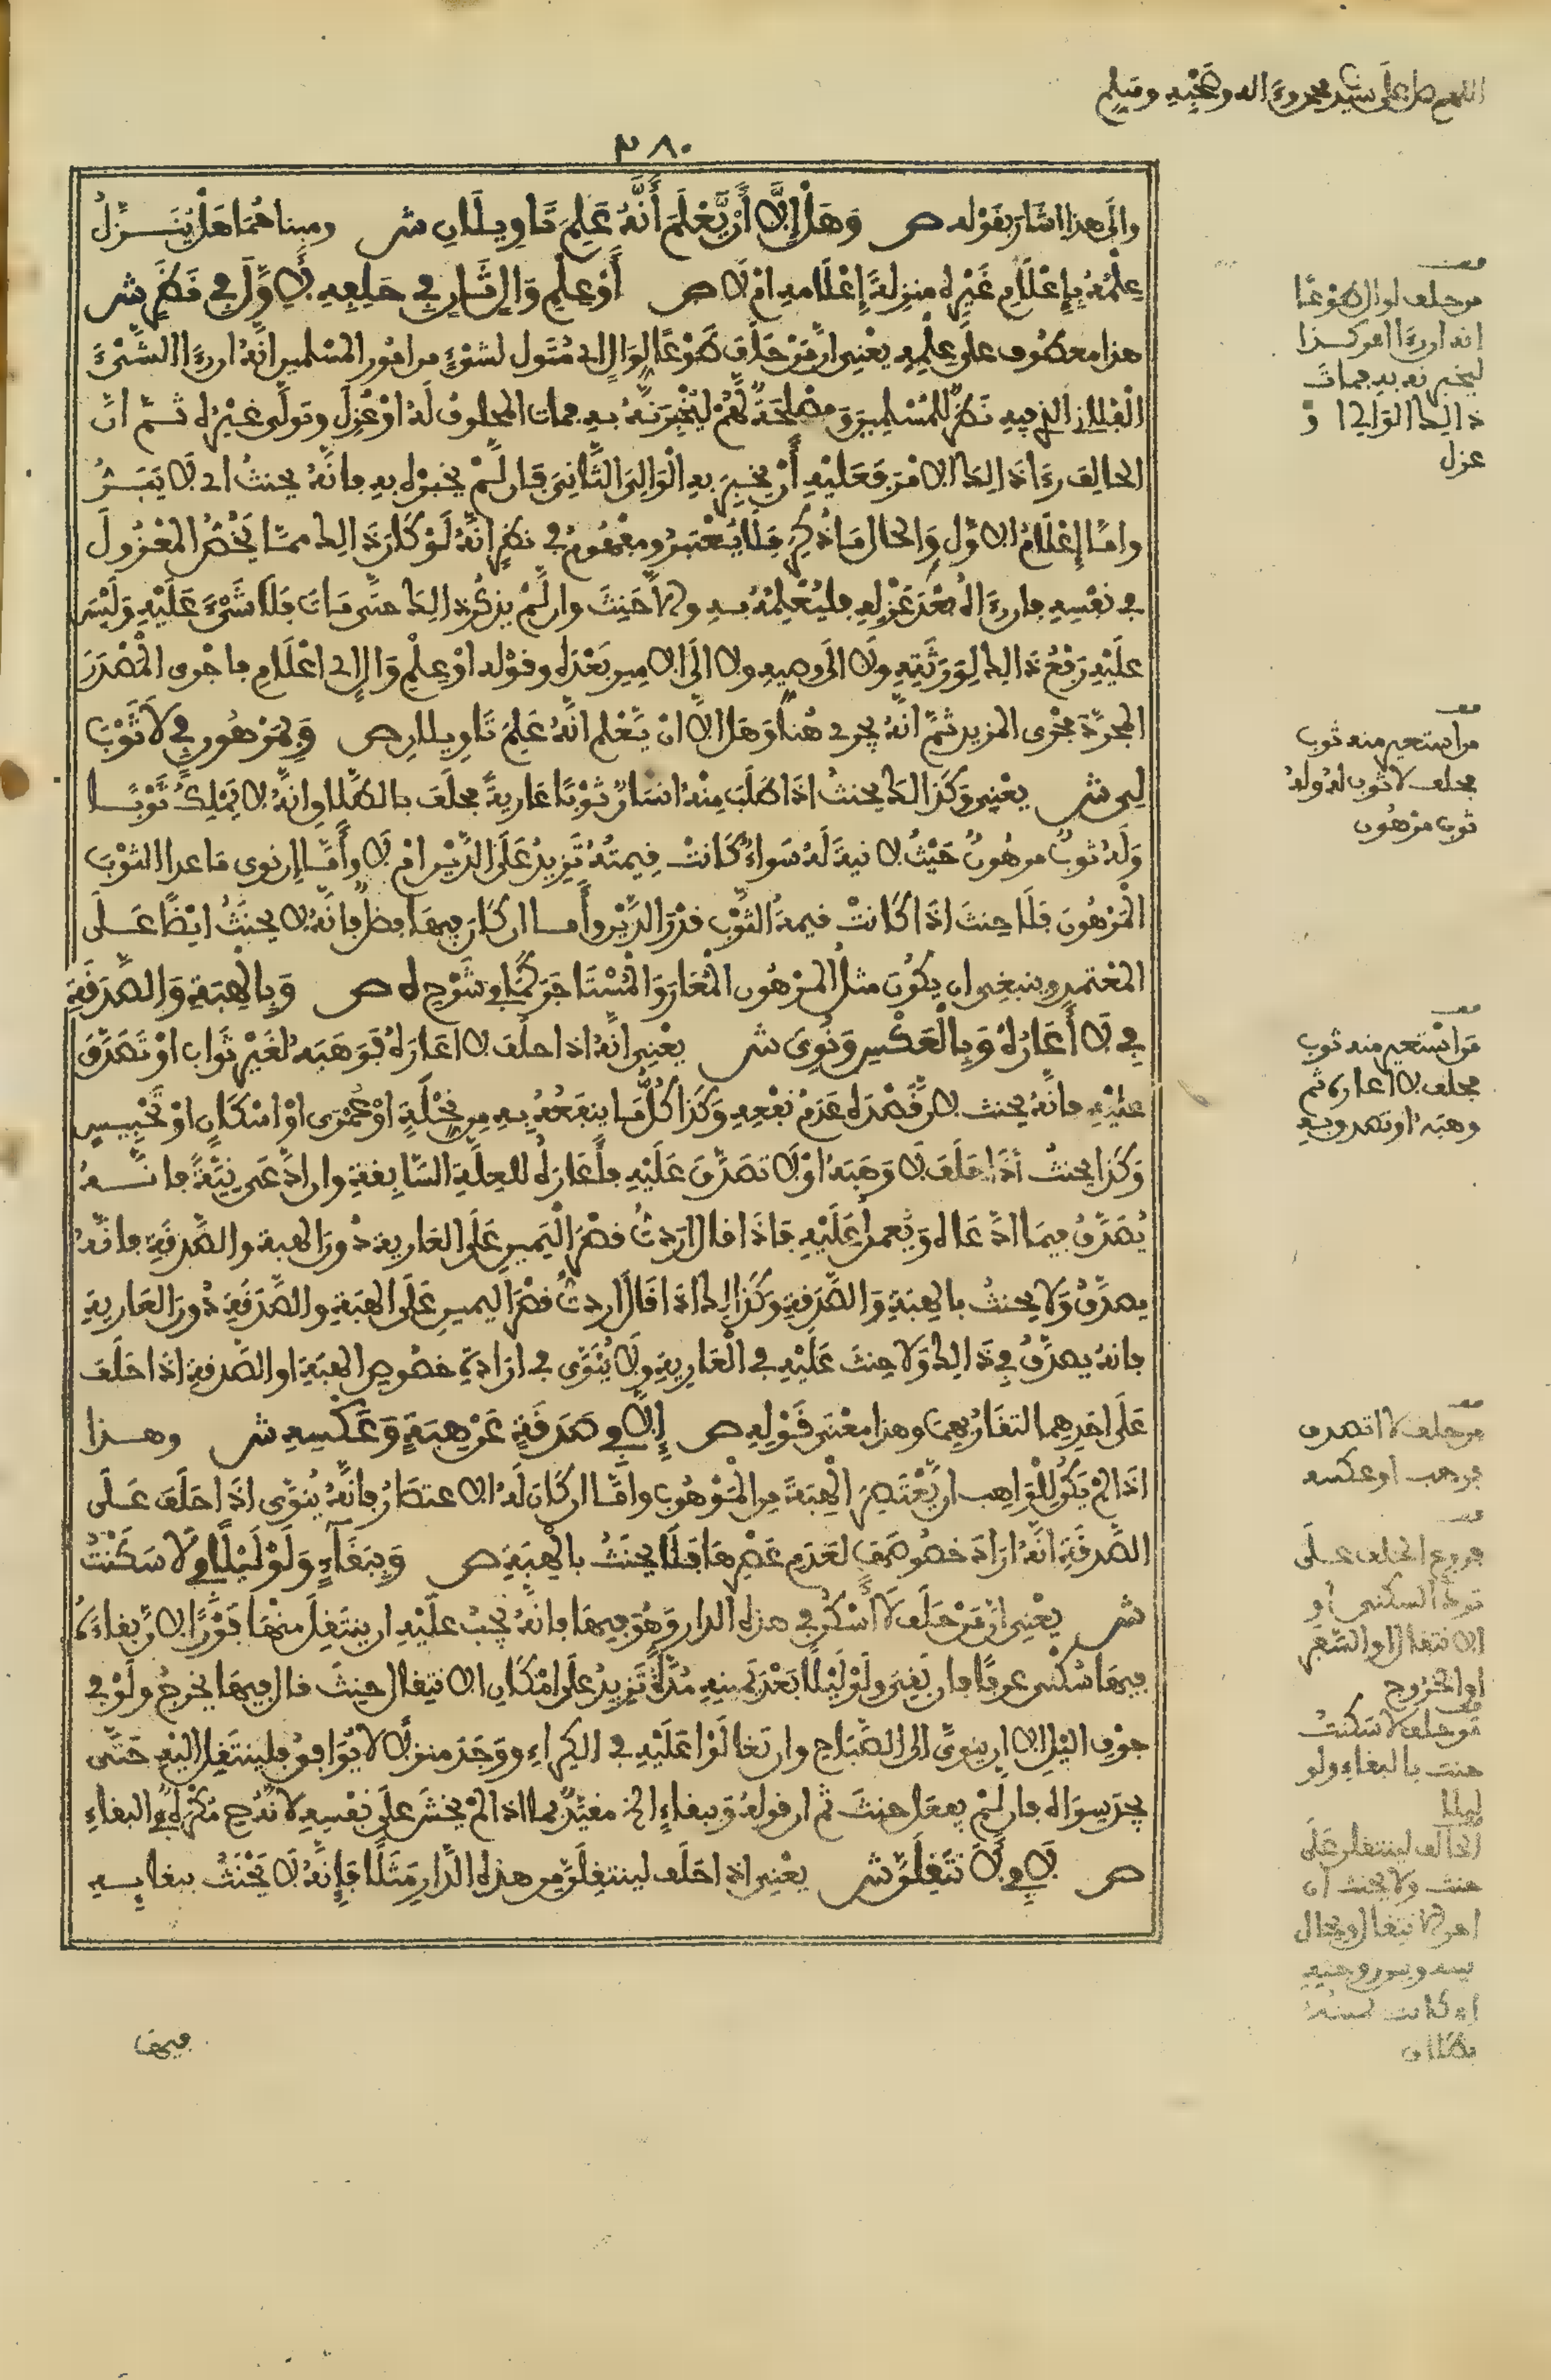 اللهم صل على سيد محمد وءاله وصحبه وسلم
٣٨٠
والى هذا اشار بقوله ص وَهَل إلا أن يَّعْلَمَ أَنَّهُ عَلِمَ تَاوِيلَانِ ش ومبناهما هل يُنَزَّلُ
عِلْمُهُ بِإِعْلَامِ غَيْرِه منزلةَ إِعْلَامه امْ لَا ص أَوْ عِلْمِ وَالٍ ثَانٍ في حَلِفِهِ لِأَوَّلَ فِي نَظَرٍ ش
هذا معطوف على عِلْمِهِ يعني ان مَنْ حَلَفَ طَوْعًا لِوَالٍ اي مُتَوَل لشيْءٍ من امُور المسلمين انَّهُ ان رءَا الشَّيْءَ
الْفُلَانِي الذي فيه نَظَرٌ لِلمُسْلِمِينَ وَمَصْلَحَةٌ لَهُمْ لَيُخْبِرَنَّهُ بِهِ فمات المحلوف لَهُ اوْ عُزِلَ وتولى غيْرُه ثم ان
الحالِف رءَا ذَالِكَ الامْرَ فَعَلَيْهِ أَنْ يخبِرَ بِهِ الْوَالِيَ الثَّانِيَ فَإن لَّمْ يخبرْه به فانَّهُ يحنثُ اي لا يَبَرُّ
وامَّا إِعْلَامُ الاوَّلِ وَالحال مَا ذُكِرَ فَلَا يُعْتَبَرُ ومفهُومُ في نظرٍ انَّهُ لَوْ كَانَ ذَالِك ممَّا يَخُصُّ المعْزُولَ
في نفْسِهِ فان رءَاهُ بَعْدَ عَزْلِهِ فليُعْلِمْهُ به والا حَنِثَ وان لَّمْ يذكُرْ ذالِك حتى مَاتَ فَلَا شَيْءَ عَلَيْهِ وَلَيْسَ
علَيْهِ رَفْعُ ذَالِك لِوَرَثَتِهِ ولا الى وصيه ولا الى الامير بَعْدَه وقوْله اوْ عِلْمِ وَالٍ اي اعْلَامِ فاجْرى المصْدَرَ
المجرَّدَ مجْرَى المزيد ثمَّ انَّهُ يجري هُنا وَهَل الا انْ يَّعْلَم انَّهُ عَلِمَ تَاوِيلان ص وَبِمَرْهُونٍ فِي لَا ثَوْبَ
لِي ش يعْنِي وَكَذالك يحنثُ اذَا طَلَبَ مِنْهُ انسَانٌ ثوْبًا عَارِيةً فحلَف بالطَّلاقِ انَّهُ لا يَمْلِكُ ثَوْبًا
وَلَهُ ثوبٌ مرهُونٌ حَيْثُ لا نيةَ لَهُ سَواءٌ كَانتْ قِيمتُهُ تَزِيدُ عَلَى الدَّيْنِ امْ لا وأَمَّا إن نوى مَا عدا الثوْبَ
الْمَرْهُونَ فَلَا حِنثَ اذَا كَانتْ قيمةُ الثَّوْبِ قدْرَ الدَّيْنِ وأما ان كَانَ فيهَا فضلٌ فانَّهُ لا يحنَثُ ايْضًا عَلَى
المعْتمدِ وينبغي ان يكُونَ مثلُ المرْهُونِ الْمُعَارَ وَالْمُسْتَاجَرَ كَمَا في شَرْحِه ص وَبِالْهِبَةِ وَالصَّدَقَةِ
فِي لَا أَعَارَهُ وَبِالْعَكْسِ وَنُوِّيَ ش يعْنِي انَّهُ اذَا حلَفَ لا اعَارَهُ فَوَهَبَهُ لغَيْرِ ثَوابٍ اوْ تَصَدَّقَ
علَيْهِ فانَّهُ يحنث لان قَصْدَه عَدَمُ نفْعِهِ وَكَذا كُلُّ مَا ينفَعُهُ بِهِ مِن نِحْلَةٍ اوْ عُمْرَى اوْ اسْكَانٍ اوْ تَحْبِيسٍ
وَكَذا يحنثُ اذَا حَلَفَ لا وَهَبَهُ اوْ لا تصَدَّقَ عَلَيْهِ فأَعَارَهُ لِلعِلَّةِ السَّابِقةِ وان ادَّعَى نِيَّةً فانَّهُ
يُصَدَّقُ فيمَا ادَّعَاه وَيُعملُ عَلَيْهِ فَاذَا قال اردتُ قصْرَ الْيَمِينِ عَلَى العَارِية دُونَ الهبة والصَّدقَةِ فانَّهُ
يصدَّقُ وَلَا يحنثُ بالهبَةِ وَالصَّدَقَةِ وَكَذَالِك اذَا قَالَ اردتُ قصْرَ اليمينِ عَلَى الهبَةِ والصَّدَقَةِ دُونَ العَارِيةِ
فانه يصدَّقُ فِي ذَالِك وَلَا حِنثَ عَلَيْهِ في الْعَارِيةِ ولَا يُنَوَّى في ارَادةِ خصُوصِ الهبَةِ او الصَّدقةِ اذَا حَلَفَ
عَلَى احَدِهِما لتقَارُبِهِمَا وهذا معْنَى قَوْلِهِ ص إِلَّا فِي صَدَقَةٍ عَنْ هِبَةٍ وَعَكْسِهِ ش وهذا
اذَا لمْ يَكُن لِلْوَاهِبِ ان يَّعْتَصِرَ الْهِبَةَ من الْمَوْهُوبِ وامَّا ان كَانَ لَهُ الاعتصَارُ فانَّهُ يُنَوَّى اذَا حَلَفَ عَلَى
الصَّدقَةِ انَّهُ ارَادَ خصُوصَهَا لعَدَمِ عَصْرِهَا فَلَا يحنَثُ بالْهِبَةِ ص وَبِبَقَاءٍ وَلَوْ لَيْلًا فِي لَا سَكَنْتُ
ش يعْنِي ان مَنْ حَلَف لَا أسْكُن في هذه الدار وَهُوَ فيها فانَّهُ يجبُ علَيْهِ ان ينتَقِلَ منْهَا فَوْرًا لان بقاءَهُ
فيهَا سُكْنى عرفًا فان بَقِيَ ولَوْ لَيْلًا بَعْدَ يَمِينِهِ مُدَّةً تَزِيدُ علَى امْكَانِ الانتِقال حنِثَ قال فيهَا يخرجُ ولَوْ في
جوْفِ اليْلِ الا ان ينوِيَ الى الصَّبَاحِ وان تغالَوْا عَلَيْهِ في الكِراءِ ووَجَدَ منزلا لا يُوَافِقُه فلينتقِل اليْهِ حَتَّى
يجدَ سِوَاه فان لَّمْ يفعَل حنثَ ثم ان قولهُ وَببقاءٍ الخ مقيَّد بما اذَا لمْ يخشَ علَى نفْسِهِ لانه ح مُكْرَهٌ في البقاءِ
ص لَا فِي لَا نَنتَقِلَنَّ ش يعْنِي اذا حَلَف لينتقِلَنَّ مِن هذه الدَّارِ مَثَلًا فَإِنَّهُ لَا يَحْنَثُ ببقايه
فيها
قف
من حلف لوال طوعًا
انه ان رءَا امر كذا
ليخبرنه به فمات
ذَالِك الوَالي اوْ
عزل
قف
من استعير منه ثوب
فحلف لا ثوب له وله
ثوب مرْهُون
قف
مَن استعير منه ثوب
فحلف لا اعاره ثم
وهَبَهُ او تصدق به
قف
من حلف لا اتصدق
فوهب او عكسه
قف
فروع الحلف على
ترك السكنى او
الانتقال او السَّفر
او الخرُوج
قف
من حلف لا سكنتُ
حنث بالبقاءِ ولو
ليلا
الحالف لينتقلن على